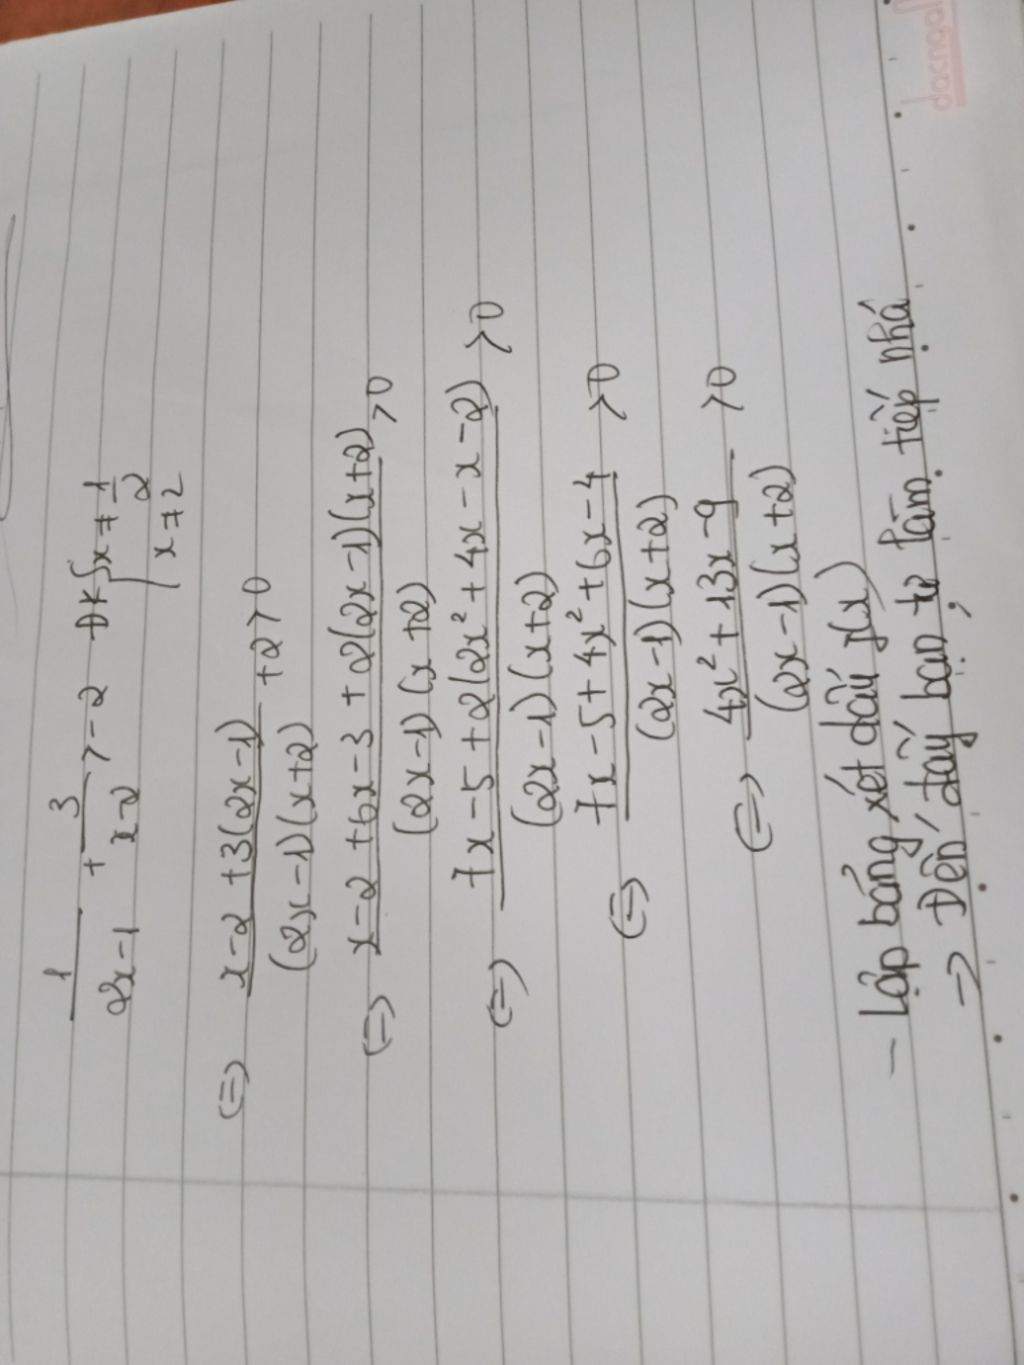 1/(2x-1) + 3/(x-2) > -2 ĐK { x ≠ 1/2
x ≠ 2
(=) (x-2+3(2x-1))/((2x-1)(x+2)) +2 > 0
(=) (x-2+6x-3+2(2x-1)(x+2))/((2x-1)(x+2)) > 0
(=) (7x-5+2(2x²+4x-x-2))/((2x-1)(x+2)) > 0
(=) (7x-5+4x²+6x-4)/((2x-1)(x+2)) > 0
(=) (4x²+13x-9)/((2x-1)(x+2)) > 0
- Lập bảng xét dấu y(x)
=> Đến đây bạn tự làm tiếp nhá